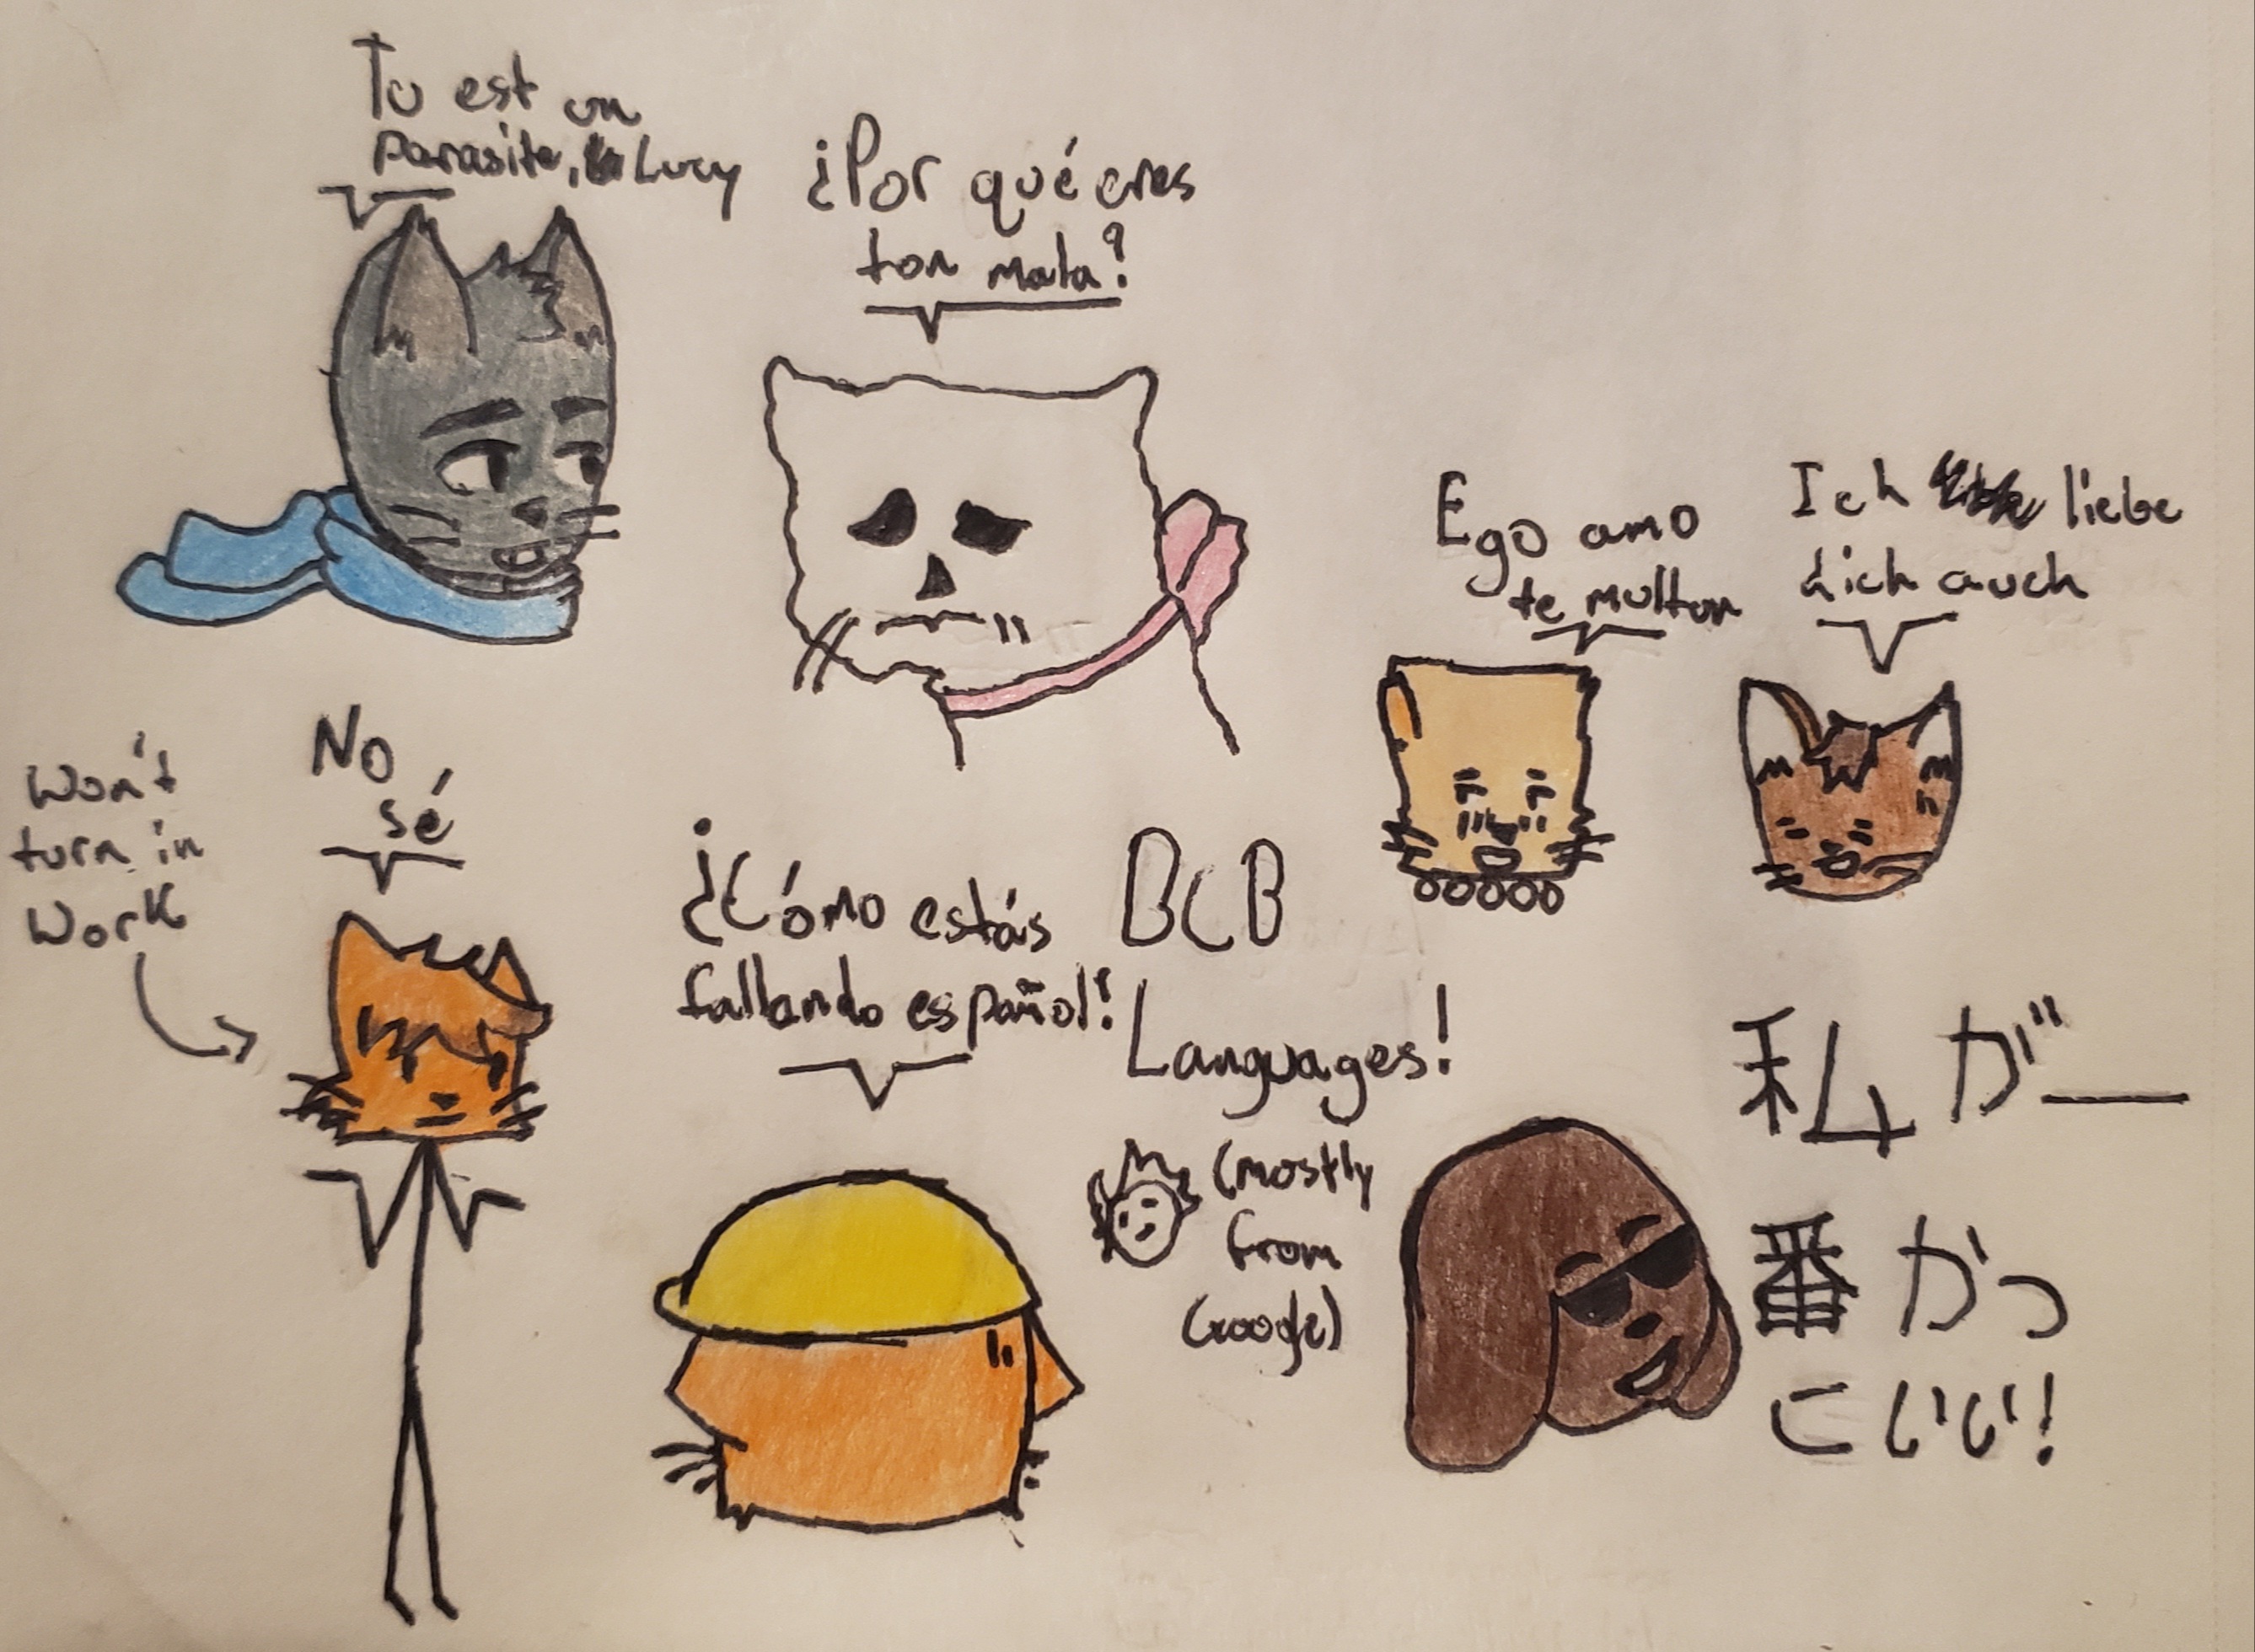 Tu est un
parasite, Lucy
¿Por qué eres
tan mala?
Ego amo
te multum
Ich liebe
dich auch
Won't
turn in
work
No
sé
¿Cómo estás
fallando español?
BCB
Languages!
(mostly
from
Google)
私が一
番かっ
こいい!